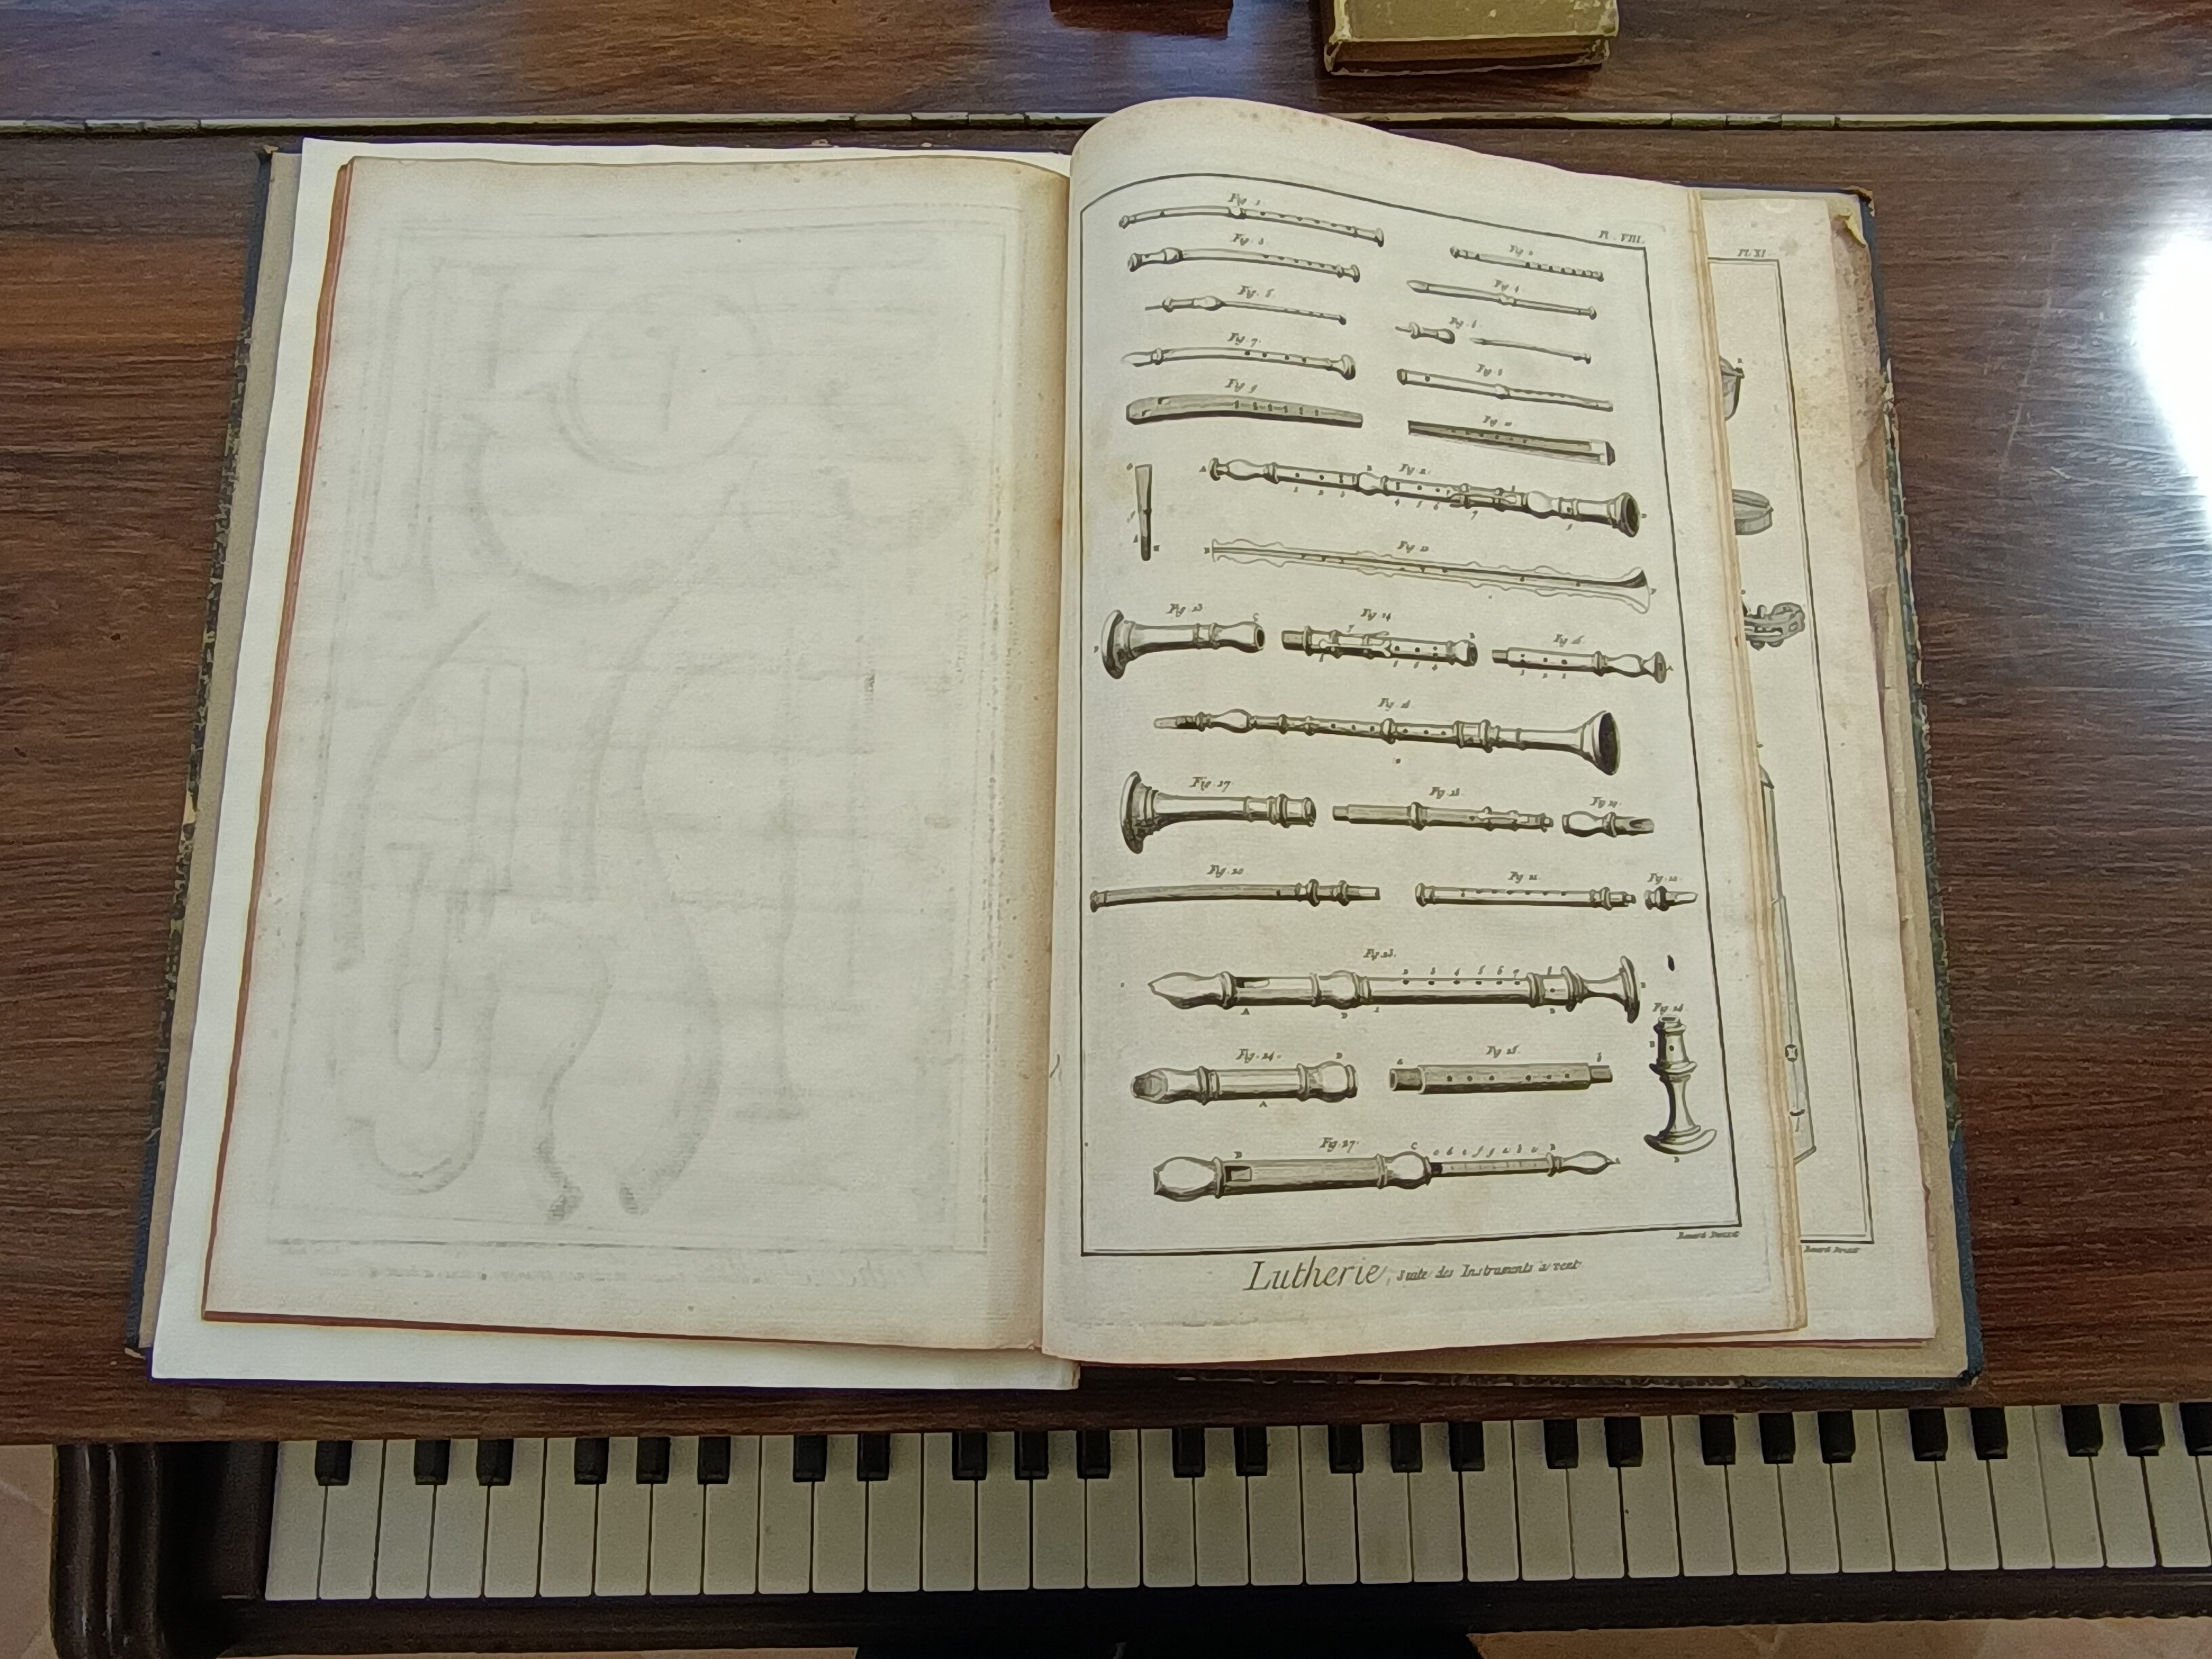 Pl. VIII.
Pl. XI
Fig. 1
Fig. 3
Fig. 2
Fig. 5
Fig. 4
Fig. 7
Fig. 6
Fig. 9
Fig. 8
Fig. 10
Fig. 11
Fig. 12
Fig. 13
Fig. 14
Fig. 15
Fig. 16
Fig. 17
Fig. 18
Fig. 19
Fig. 20
Fig. 21
Fig. 22
Fig. 23
Fig. 24
Fig. 25
Fig. 26
Fig. 27
Benard Direxit
Benard Direxit
Lutherie, Suite des Instruments à vent